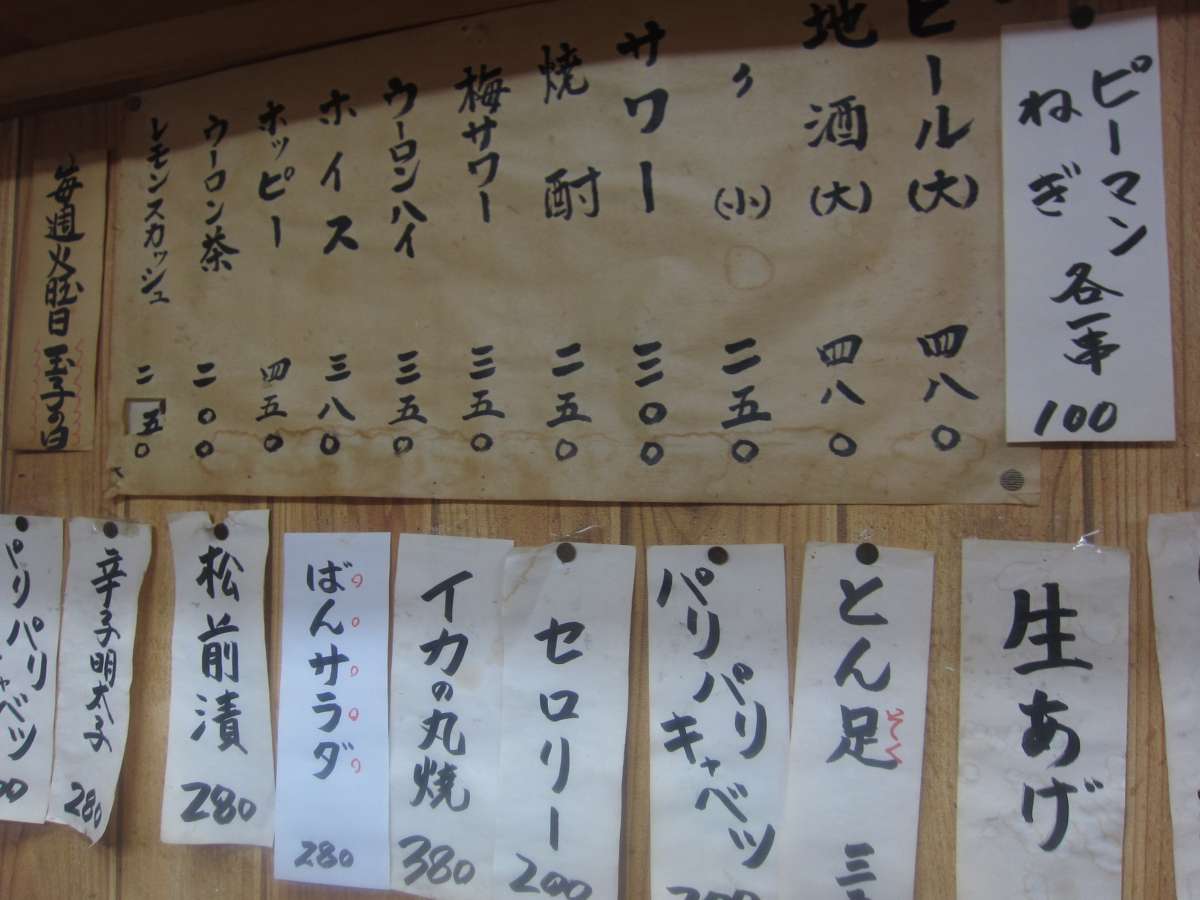 ピーマン
ねぎ 各一串
100
ビール(大) 四八〇
地酒(大) 四八〇
〃(小) 二五〇
サワー 三〇〇
焼酎 二五〇
梅サワー 三五〇
ウーロンハイ 三五〇
ホイス 三八〇
ホッピー 四五〇
ウーロン茶 二〇〇
レモンスカッシュ 二五〇
毎週火曜日 玉子の日
生あげ
とん足
そく
パリパリ
キャベツ
セロリー
200
イカの丸焼
380
ばんサラダ
280
松前漬
280
辛子明太子
280
パリパリ
キャベツ